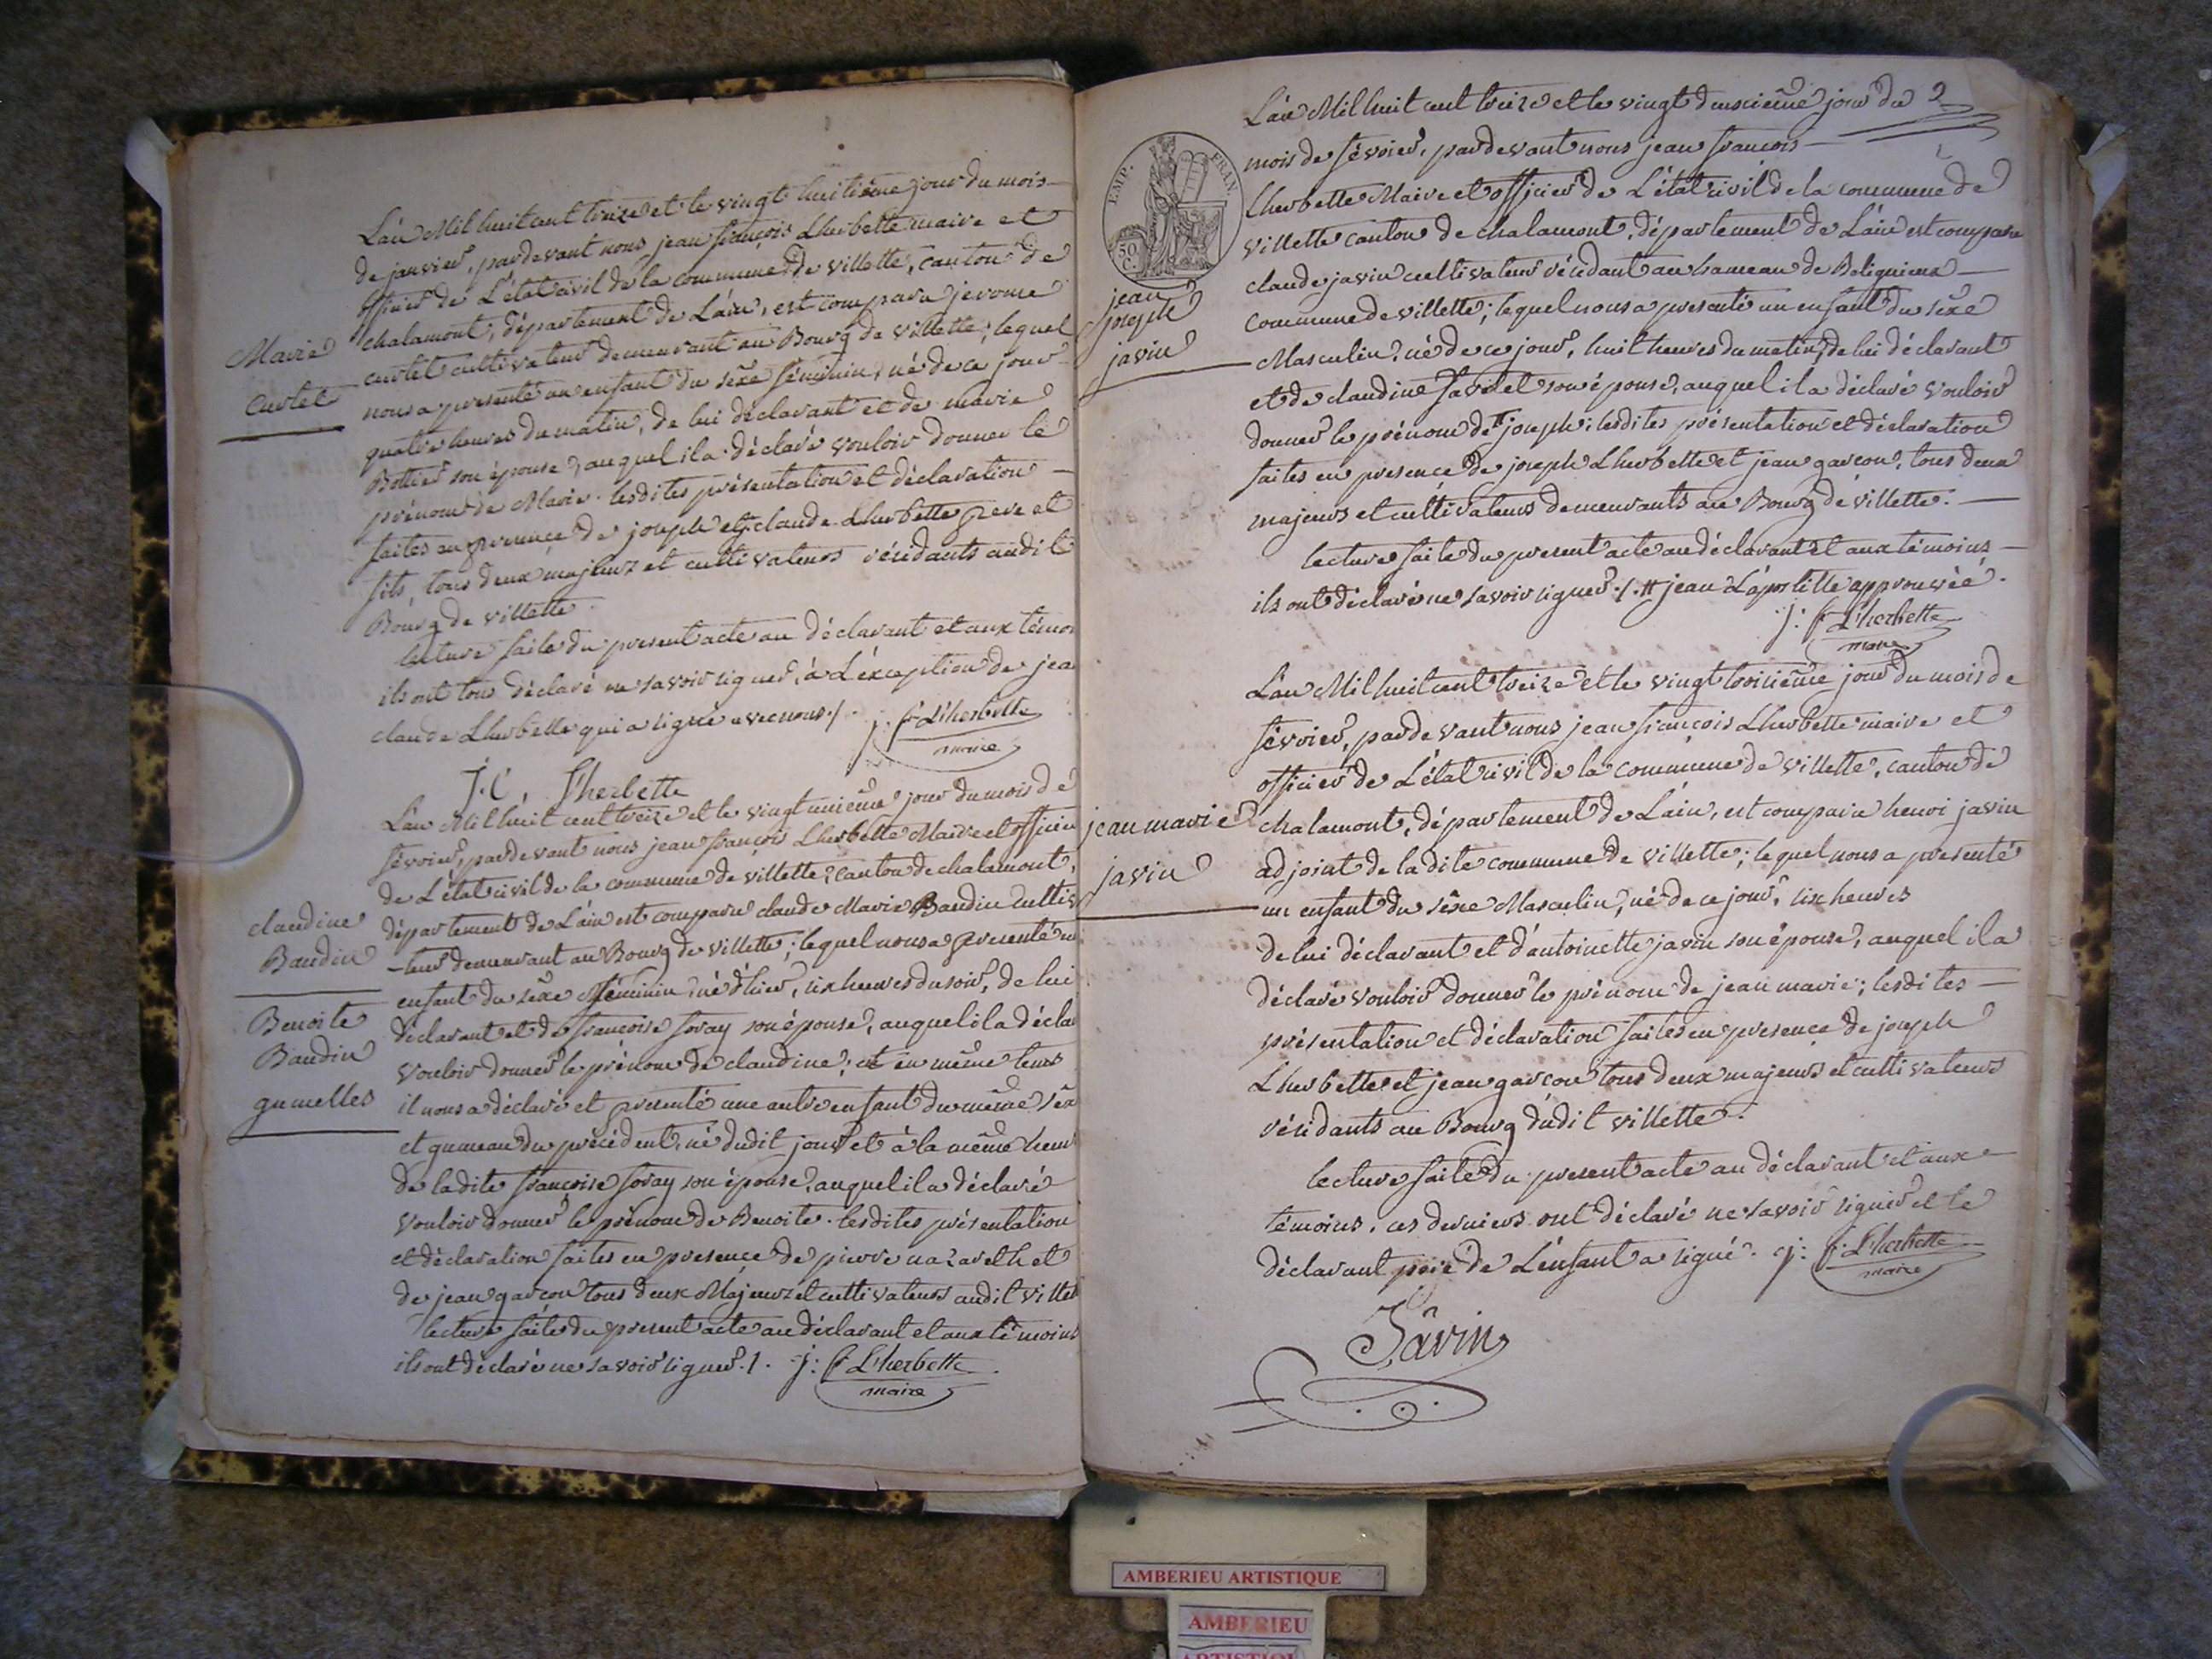 L'an Mil huit cent treize et le vingt huitième jour du mois
de janvier, pardevant nous jean françois Lherbette maire et
officier de L'état civil de la commune de villette, canton de
chalamont, département de L'ain, est comparu jerome
curtet cultivateur demeurant au Bourg de villette; lequel
nous a presenté un enfant du sèxe féminin, né de ce jour
quatre heures du matin, de lui déclarant et de marie
Bottier son épouse, auquel il a déclaré vouloir donner le
prénom de Marie. lesdites présentation et déclaration
faites en presence de joseph et claude Lherbette pere et
fils, tous deux majeurs et cultivateurs résidants audit
Bourg de villette.
lecture faite du present acte au déclarant et aux témoi
ils ont tous déclaré ne savoir signer, à L'éxception de jea
claude Lherbette qui a signé avec nous ./.
j: f Lherbette
maire
J. C. Lherbette
Marie
Curtet
L'an Mil huit cent treize et le vingt unième jour du mois de
févrièr, pardevant nous jean françois Lherbette Maire et officier
de L'état civil de la commune de villette, canton de chalamont,
département de L'ain est comparu claude Marie Baudin cultiv
-teur demeurant au Bourg de villette; lequel nous a presenté un
enfant du sèxe féminin, né d'hier, six heures du soir, de lui
déclarant et de françoise foray son épouse, auquel il a décla
vouloir donner le prénom de claudine; et en même tems
il nous a déclaré et presenté une autre enfant du même sèx
et gumeau du précédent, né dudit jour et à la même heur
de ladite françoise foray son épouse, auquel il a déclaré
vouloir donner le prénom de Benoite. lesdites présentation
et déclaration faites en presence de pierre nazareth et
de jean garcon tous deux Majeurs et cultivateurs audit villet
lecture faite du present acte au déclarant et aux témoins
ils ont déclaré ne savoir signer ./. j: f Lherbette
maire
claudine
Baudin
Benoite
Baudin
gumelles
2
L'an Mil huit cent treize et le vingt deuxième jour du
mois de févrièr, pardevant nous jean francois
Lherbette Maire et officier de L'état civil de la commune de
villette canton de chalamont, département de L'ain est comparu
claude javin cultivateur résidant au hameau de Boligneux
commune de villette; lequel nous a presenté un enfant du sèxe
Masculin, né de ce jour, huit heures du matin, de lui déclarant
et de claudine favet son épouse, auquel il a déclaré vouloir
donner le prénom de # joseph; lesdites présentation et déclaration
faites en presence de joseph Lherbette et jean garcon, tous deux
majeurs et cultivateurs demeurants au Bourg de villette.
lecture faite du present acte au déclarant et aux témoins
ils ont déclaré ne savoir signer ./. # jean L'apostille approuvéé.
j: f Lherbette
maire
EMP. FRAN.
50
C.
jean
joseph
javin
L'an Mil huit cent treize et le vingt troisième jour du mois de
févrièr, pardevant nous jean françois Lherbette maire et
officier de L'état civil de la commune de villette, canton de
chalamont, département de L'ain, est comparu henri javin
adjoint de ladite commune de villette; lequel nous a presenté
un enfant du sèxe Masculin, né de ce jour, six heures
de lui déclarant et d'antoinette javin son épouse, auquel il a
déclaré vouloir donner le prénom de jean marie; lesdites
présentation et déclaration faites en presence de joseph
Lherbette et jean garcon tous deux majeurs et cultivateurs
résidants au Bourg dudit villette.
lecture faite du present acte au déclarant et aux
témoins, ces derniers ont déclaré ne savoir signer et le
déclarant père de L'enfant a signé. j: f. Lherbette
maire
Javin
jean marie
javin
AMBERIEU ARTISTIQUE
AMBERIEU
ARTISTIQU